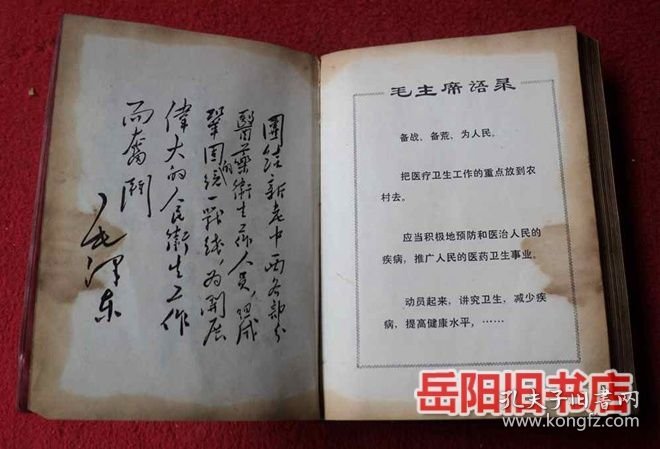 團結新老中西各部分
醫藥衛生工作人員，組成
鞏固的統一戰線，为開展
偉大的人民衛生工作
而奮鬥
毛澤东
毛主席语录
备战、备荒、为人民。
把医疗卫生工作的重点放到农
村去。
应当积极地预防和医治人民的
疾病，推广人民的医药卫生事业。
动员起来，讲究卫生，减少疾
病，提高健康水平，……
岳阳旧书店
孔夫子旧书网
www.kongfz.com